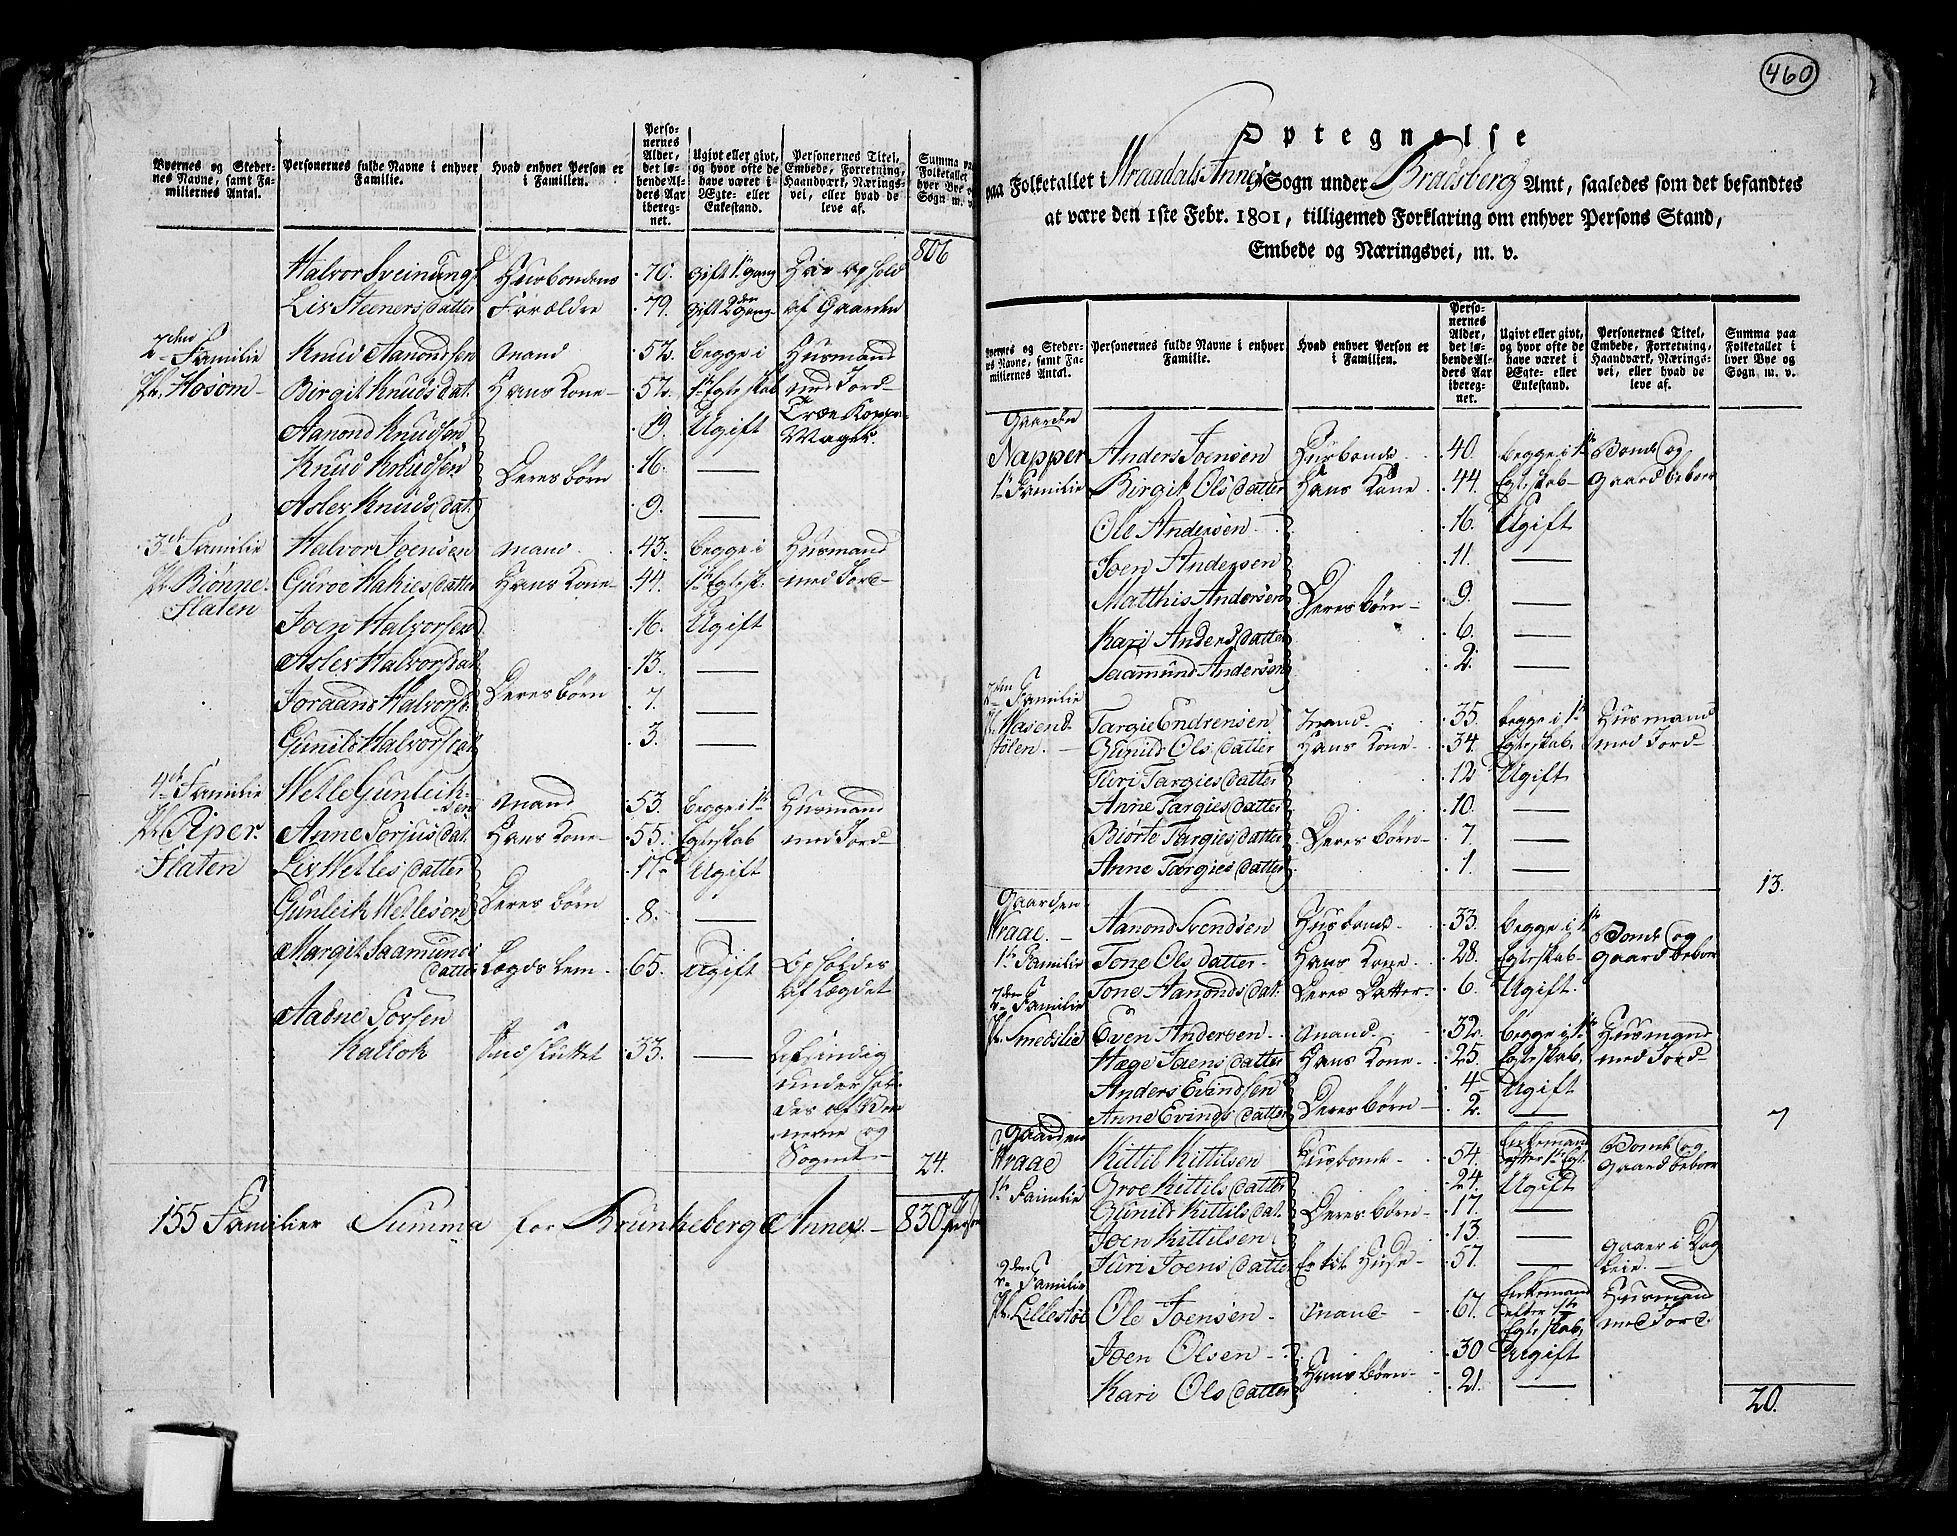 Byernes og Steder-
nes Navne, samt Fa-
miliernes Antal.
Personernes fulde Navne i enhver
Familie.
Hvad enhver Person er
i Familien.
Perso-
nernes
Alder,
det lø-
bende Al-
ders Aar
ibereg-
net.
Ugivt eller givt,
og hvor ofte de
have været i
Ægte- eller
Enkestand.
Personernes Titel,
Embede, Forretning,
Haandværk, Nærings-
vei, eller hvad de
leve af.
Summa paa
Folketallet i
hver Bye og
Sogn m. v.
806
Halvor Sveinungs. Huusbondens 70. gift 1te gang
Liv Steeners datter Forældre 79. gift 2den gang af Gaarden
2den Familie Knud Aanondsen Mand 52. begge i Husmand
Pl. Aosom Birgit Knuds dat. Hans Kone 52. 1te Egteskab med Jord
Aanond Knudsen 19. Ugift
Knud Knudsen Deres børn 16. —
Aslev Knuds dat. 9. —
3de Familie Halvor Joensen Mand 43. begge i Husmand
Pl. Biønne- Guroe Hahies datter Hans Kone 44. 1te Egtesk. med Jord
Flaten
Joen Halvorsen 16. Ugift
Aslev Halvors dat 13. —
Joraand Halvorsd. Deres børn 7. —
Gunild Halvors dat 3. —
4de Familie Welle Gunleik-
sen Mand 53. begge i 1te Husmand
Pl. Piper- Anne Torjus dat. Hans Kone 55. Egteskab med Jord
Flaten Liv Welles datter 17 Ugift
Gunleik Wellesøn Deres børn 8. —
Margit Saamunds
datter Lægds lem 65. Ugift
af Lægdet
Aadne Torsen
Kallok Indskuttet 33. — Afsindig
underhol-
des af
og
Sognet
24.
155 Familier Summa for Brunkeberg Annex 830
460
Optegnelse
paa Folketallet i Wraadals Annex Sogn under Bradsberg Amt, saaledes som det befandtes
at være den 1ste Febr. 1801, tilligemed Forklaring om enhver Persons Stand,
Embede og Næringsvei, m. v.
Byernes og Steder-
nes Navne, samt Fa-
miliernes Antal.
Personernes fulde Navne i enhver
Familie.
Hvad enhver Person er
i Familien.
Perso-
nernes
Alder,
det lø-
bende Al-
ders Aar
ibereg-
net.
Ugivt eller givt,
og hvor ofte de
have været i
Ægte- eller
Enkestand.
Personernes Titel,
Embede, Forretning,
Haandværk, Nærings-
vei, eller hvad de
leve af.
Summa paa
Folketallet i
hver Bye og
Sogn m. v.
Gaarden
Napper Anders Joensen Husbonde 40. begge i 1te Bonde og
1te Familie Birgit Ols datter Hans Kone 44. Egteskab Gaardbeboer
Ole Andersen 16. Ugift
Joen Andersen 11. —
Matthis Andersen Deres børn 9. —
Kari Anders datter 6. —
Saamund Andersen 2. —
2den Familie
Pl. Mosend- Targie Endrensen Mand 35. begge i 1te Husmand
stølen. Gunild Ols datter Hans Kone 34. Egteskab med Jord
Turi Targies datter 12 Ugift
Anne Targies datter 10. —
Biørte Targies datter Deres børn 7. —
Anne Targies datter 1. —
13.
Gaarden
Wraae. Aanond Svendsen Husbonde 33. begge i 1te Bonde og
1te Familie Tone Ols datter Hans Kone 28. Egteskab Gaardbeboer
2den Familie Tone Aanonds dat. Deres Datter 6. Ugift.
Pl. Smedslie Even Andersen Mand 32. begge i 1te Husmand
Hæge Joens datter Hans Kone 25. Egteskab med Jord
Anders Evindsen 4 Ugift
Anne Evinds datter Deres børn 2. —
7
Gaarden
Wraae Kittil Kittilsen Husbonde 54. Enkemand
efter 1te Egt. Bonde og
Gaardbeboer
1te Familie Groe Kittils datter 24. Ugift
Gunild Kittils dat. Deres børn 17. —
Joen Kittilsen 13. —
2den Familie Turi Joens datter Er til Huse 57. — gaaer i Dag
leie.
Pl. Lillestøe Ole Joensen Mand 67. Enkemand
efter 1te
Egteskab, Husmand
med Jord.
Joen Olsen 30 Ugift
Kari Ols datter Hans børn 21. —
20.